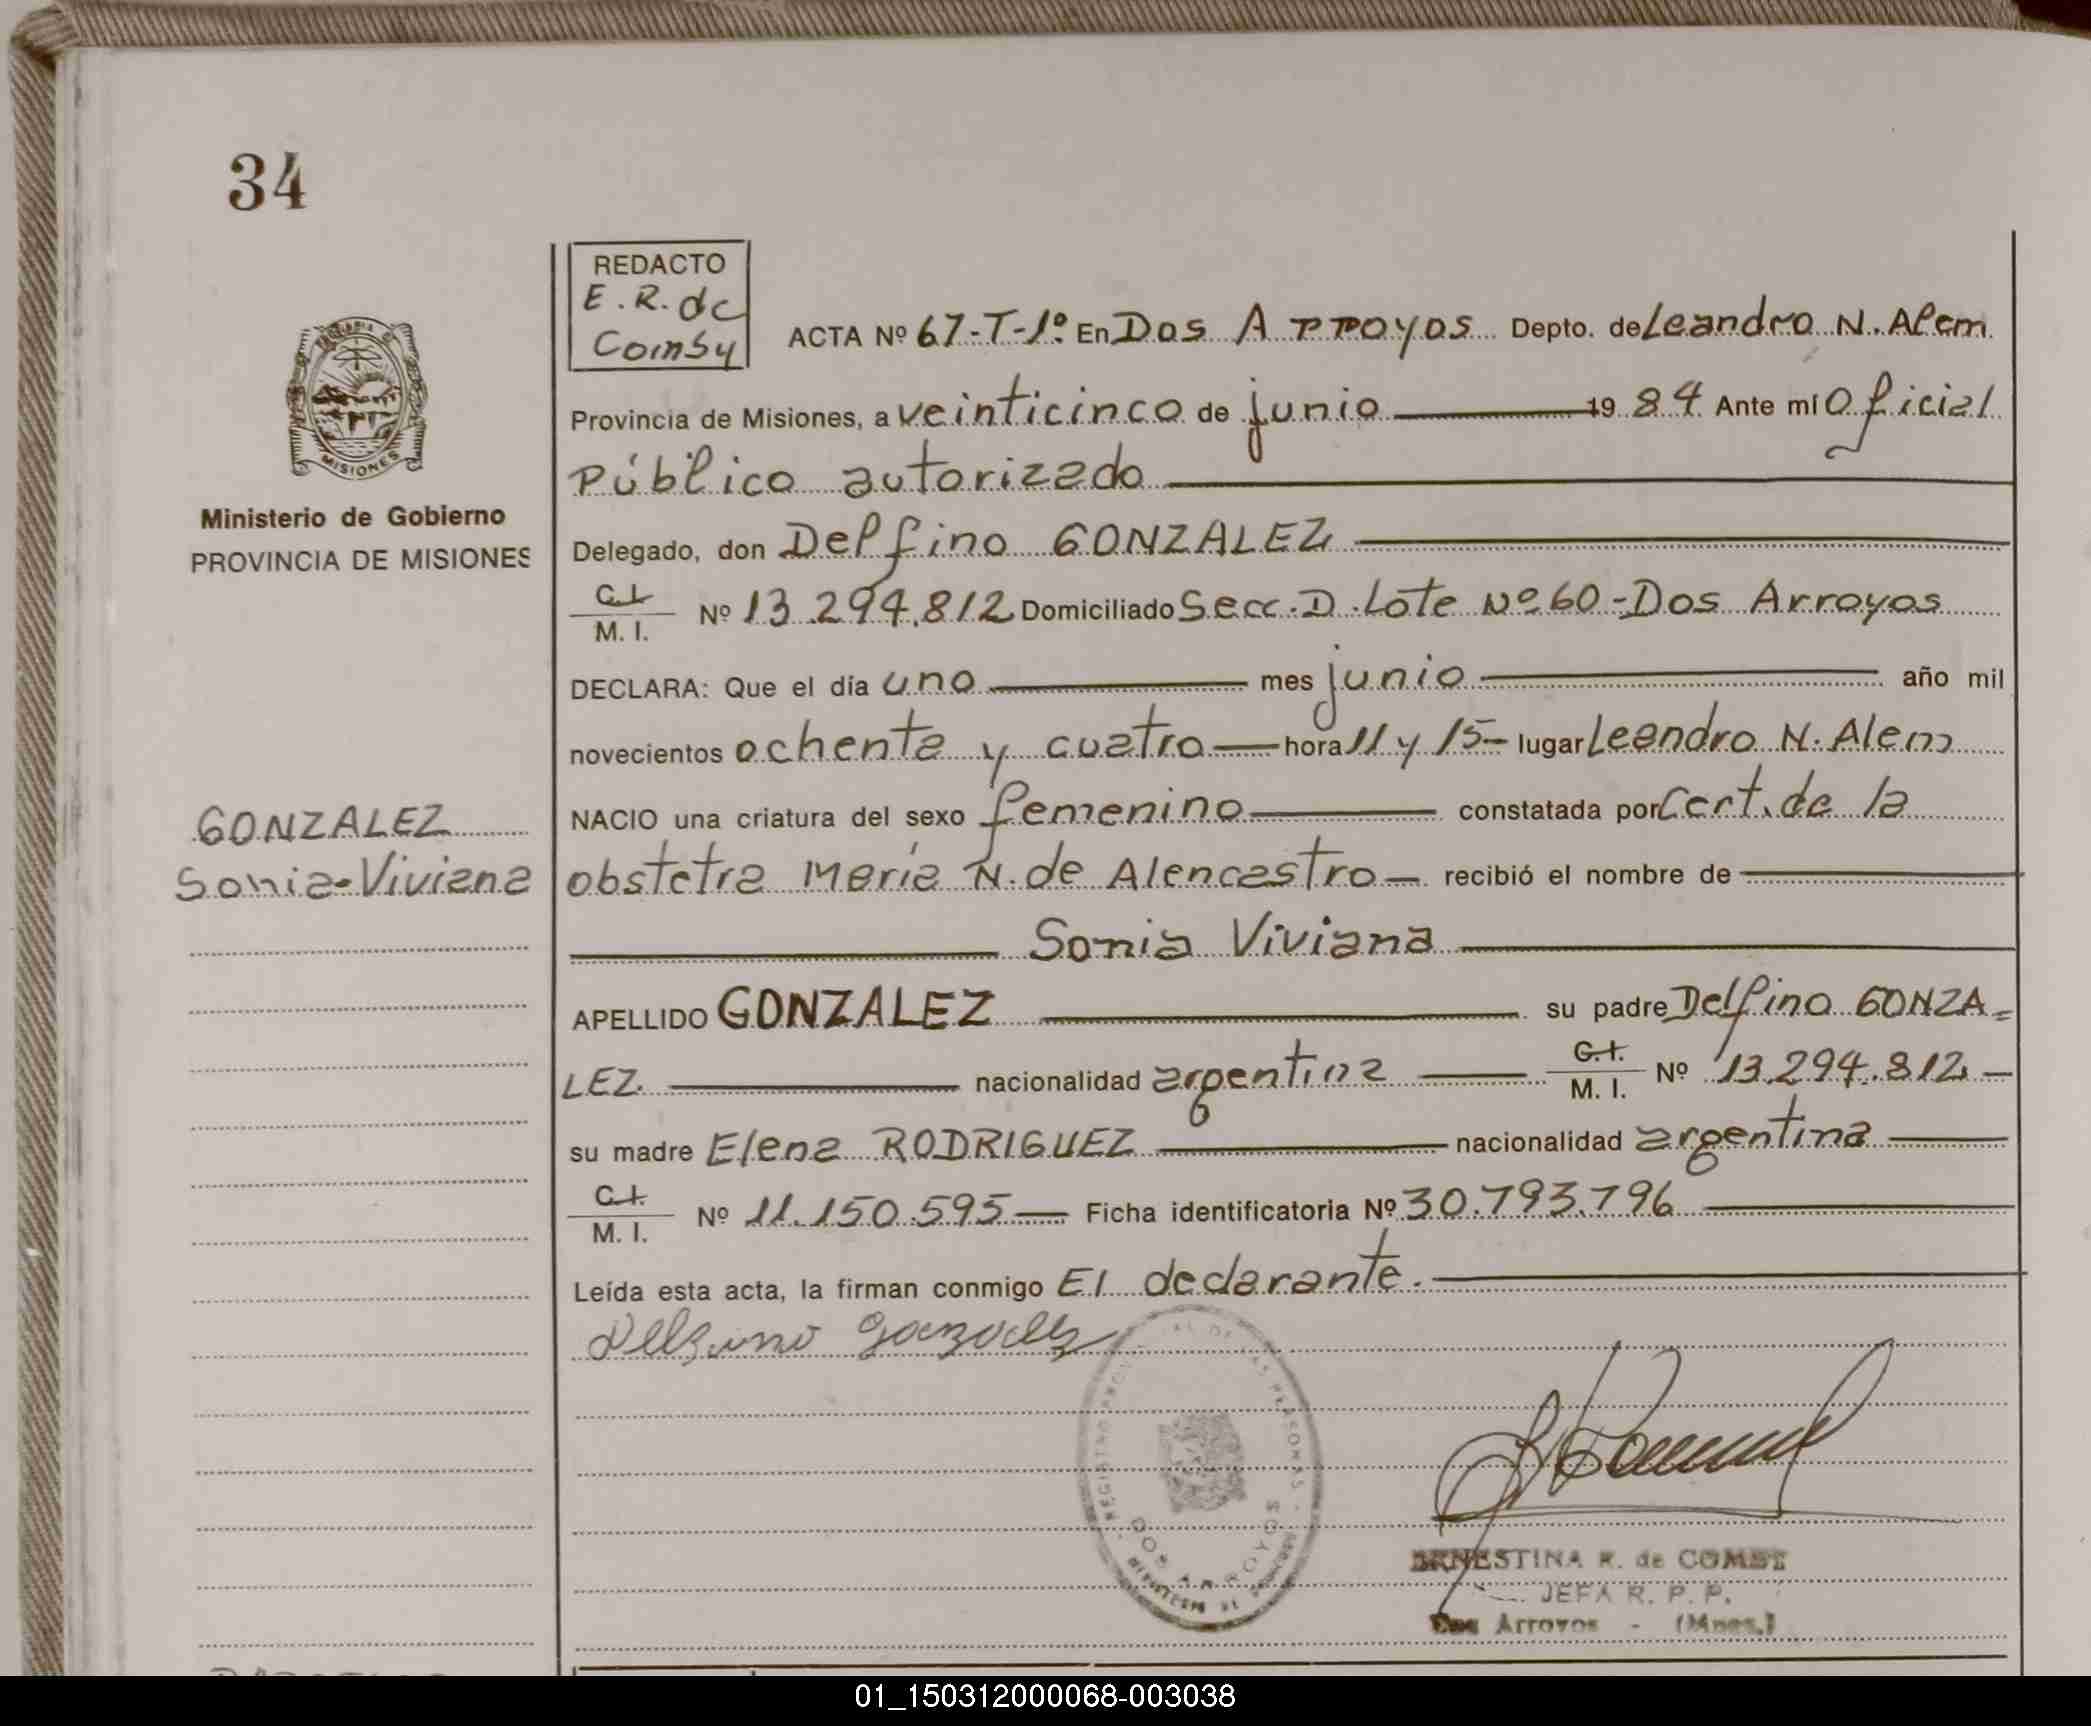 34
REDACTO
E. R. de
Comby
ACTA Nº 67-T-1º En Dos Arroyos Depto. de Leandro N. Alem
Provincia de Misiones, a veinticinco de junio 1984 Ante mí Oficial
Público autorizado
MISIONES
Ministerio de Gobierno
PROVINCIA DE MISIONES
Delegado, don Delfino GONZALEZ
C.I. M. I. Nº 13.294.812 Domiciliado Secc. D. Lote Nº 60-Dos Arroyos
DECLARA: Que el día uno mes junio año mil
novecientos ochenta y cuatro hora 11 y 15- lugar Leandro N. Alem
GONZALEZ
Sonia-Viviana
NACIO una criatura del sexo femenino constatada por Cert. de la
obstetra María N. de Alencastro recibió el nombre de
Sonia Viviana
APELLIDO GONZALEZ su padre Delfino GONZA=
LEZ. nacionalidad argentina C.I. M. I. Nº 13.294.812
su madre Elena RODRIGUEZ nacionalidad argentina
C.I. M. I. Nº 11.150.595 Ficha identificatoria Nº 30.793.796
Leída esta acta, la firman conmigo El declarante.
Delfino Gonzalez
DE LAS PERSONAS
REGISTRO
DOS ARROYOS
ERNESTINA R. de COMBY
JEFA R. P. P.
Dos Arroyos - (Mnes.)
01_150312000068-003038